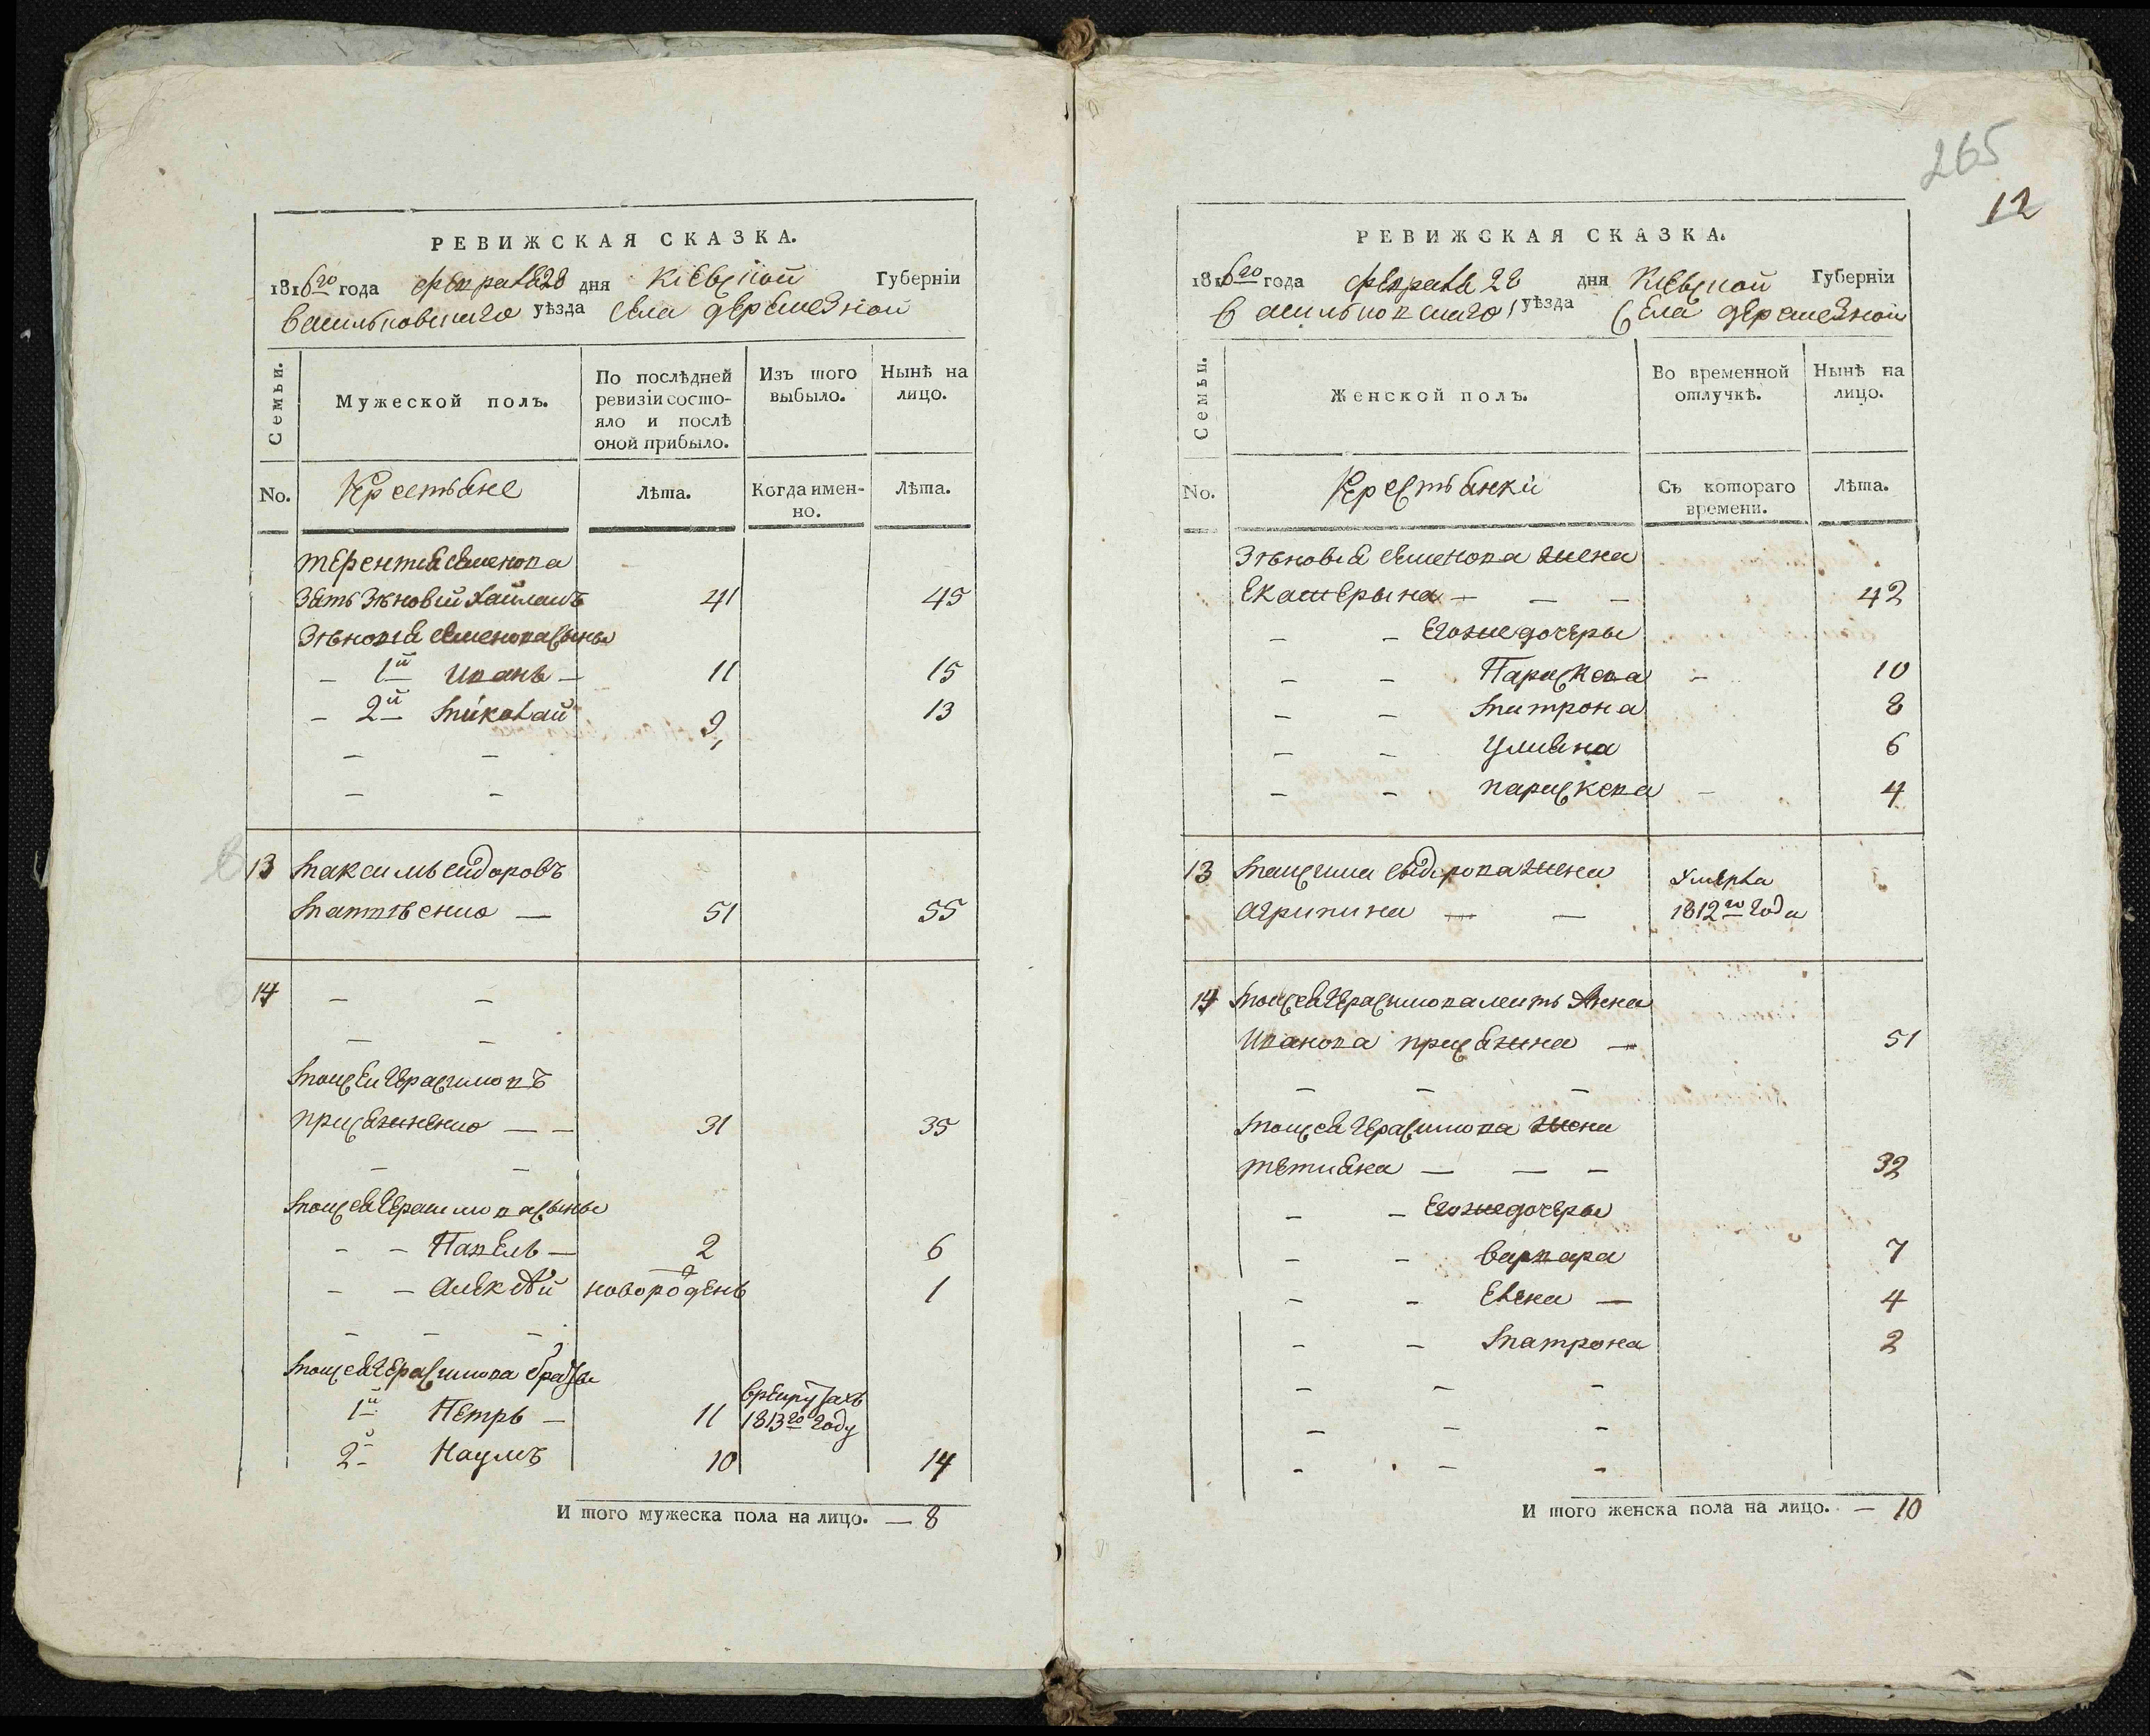 РЕВИЖСКАЯ СКАЗКА.
1816го года февраля 28 дня Киевской Губернiи
Васильковскаго уѣзда села деремезной
Семьи.
Мужеской полъ.
По послѣдней ревизiи состояло и послѣ оной прибыло.
Изъ того выбыло.
Нынѣ на лицо.
No.
Крестьяне
Лѣта.
Когда именно.
Лѣта.
терентия семенова
зять Зѣновий 41 45
Зѣновия семенова сыны
1й Иванъ 11 15
2й Николай 9 13
13 Максимъ сидоровъ
Матвѣенко 51 55
14
Моисей Герасимовъ
присяжненко 31 35
Моисея Герасимова сыны
Павелъ 2 6
Алексѣй новороденъ 1
Моисея Герасимова братья
1й Петръ 11 врекрутахъ 1813го году
2й Наумъ 10 14
И того мужеска пола на лицо. — 8
265
12
РЕВИЖСКАЯ СКАЗКА.
1816го года февраля 28 дня Киевской Губернiи
Васильковскаго уѣзда Села деремезной
Семьи.
Женской полъ.
Во временной отлучкѣ.
Нынѣ на лицо.
No.
Крестьянки
Съ котораго времени.
Лѣта.
Зѣновия семенова жена
Екатерына 42
Егоже дочеры
Параскева 10
Матрона 8
Улияна 6
параскева 4
13 Максима сидорова жена
агрипина умерла 1812го года
14 Моисея Герасимова мать Анна
Иванова присяжна 51
Моисея Герасимова жена
тетияна 32
Егоже дочеры
варвара 7
Елена 4
Матрона 2
И того женска пола на лицо. — 10